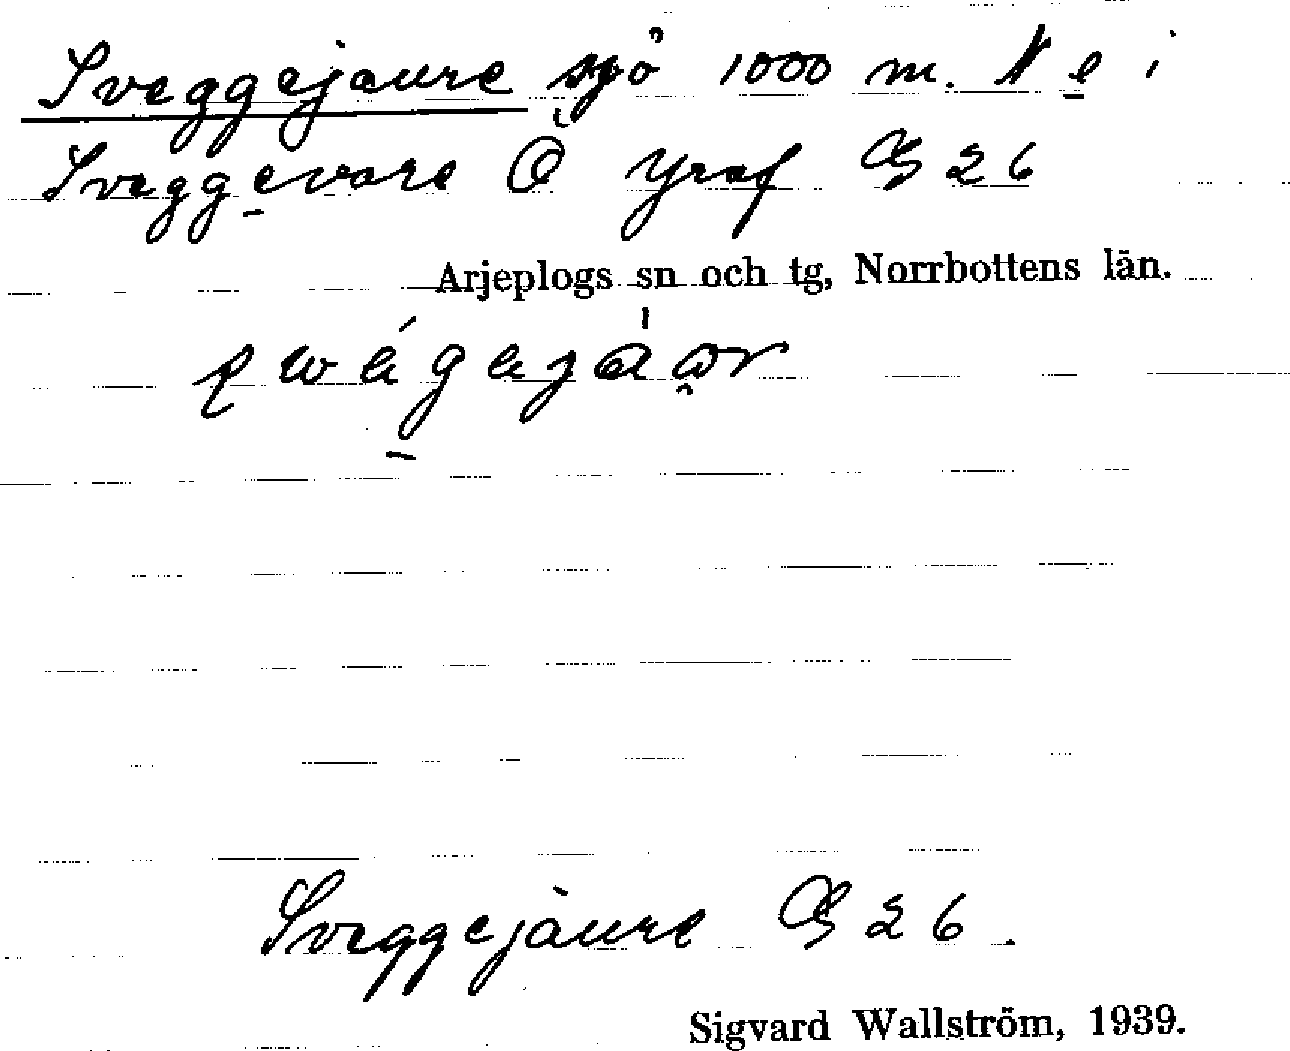 Sveggejaure sjö 1000 m. N e i
Sveggevare Ö yraf G 26
Arjeplogs sn och tg, Norrbottens län.
Sveggejaure G 26.
Sigvard Wallström, 1939.